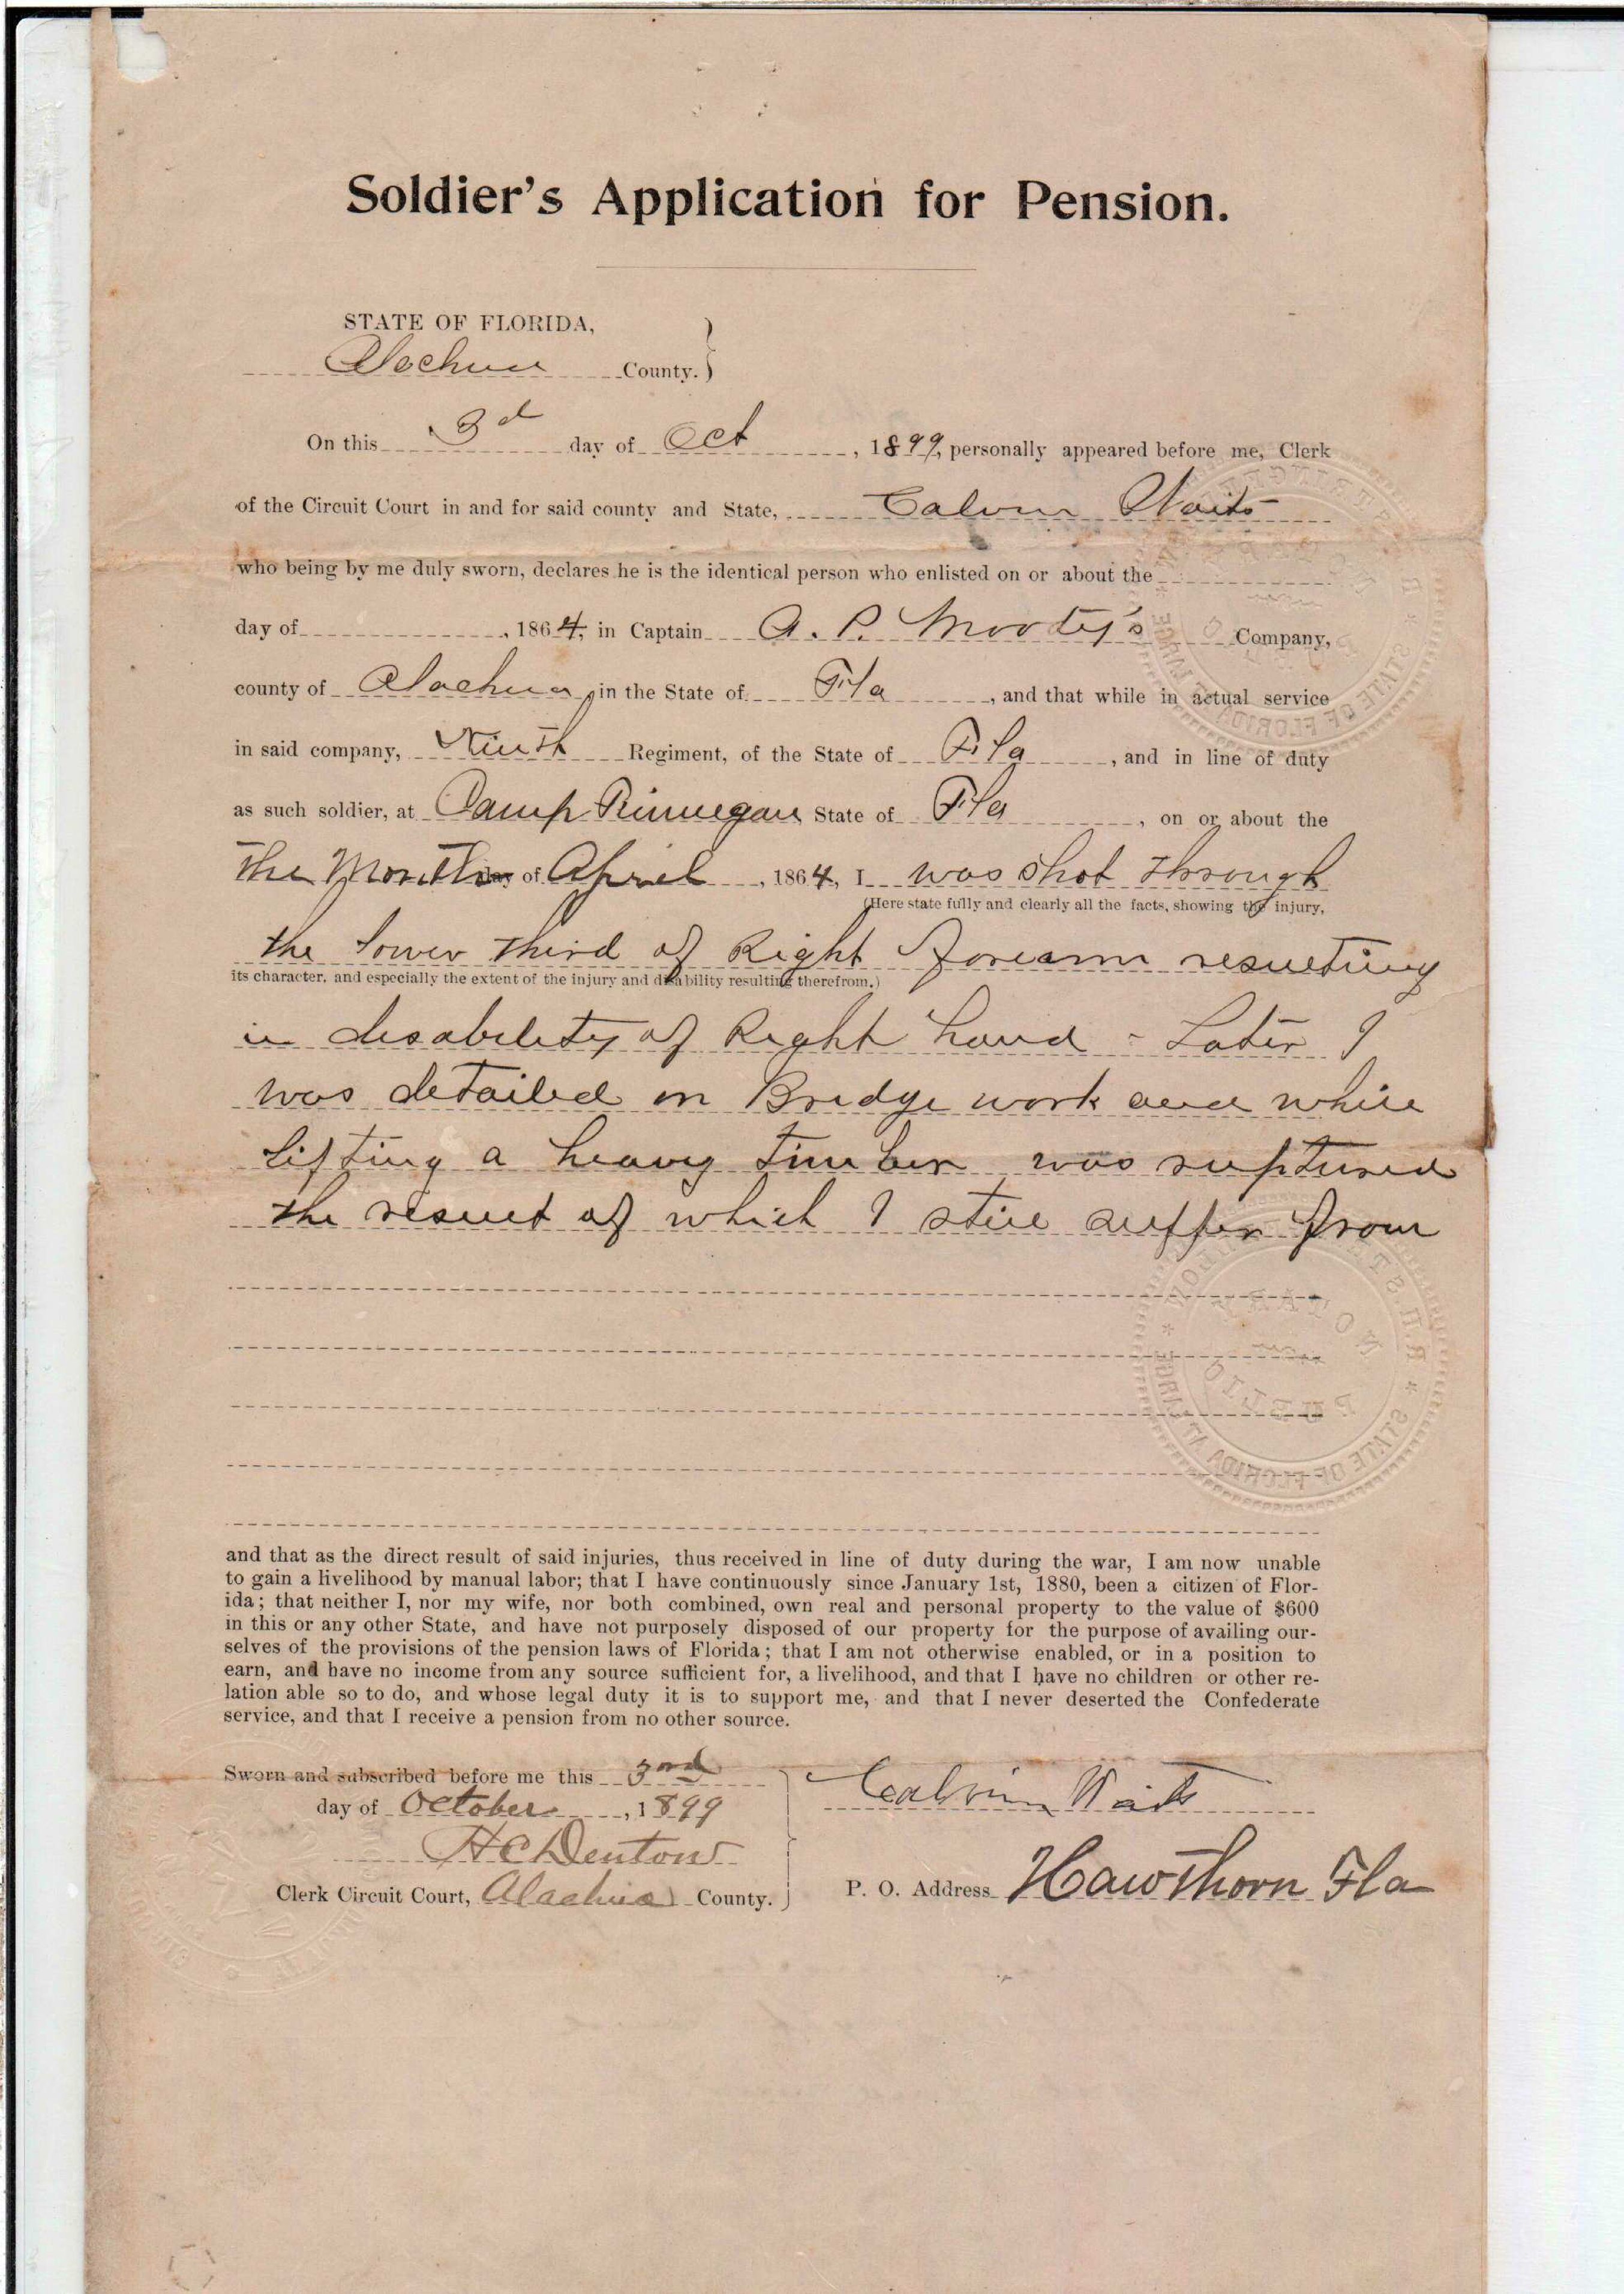 Soldier's Application for Pension.
STATE OF FLORIDA,
Alachua County.
On this 3d day of Oct, 1899, personally appeared before me, Clerk
of the Circuit Court in and for said county and State, Calvin Waits
who being by me duly sworn, declares he is the identical person who enlisted on or about the
day of , 1864, in Captain A. P. Moody's Company,
county of Alachua, in the State of Fla, and that while in actual service
in said company, Ninth Regiment, of the State of Fla, and in line of duty
as such soldier, at Camp Finnegan, State of Fla, on or about the
the Month day of April, 1864, I was shot through
(Here state fully and clearly all the facts, showing the injury,
the lower third of Right forearm resulting
its character, and especially the extent of the injury and disability resulting therefrom.)
in disability of Right hand - Later I
was detailed on Bridge work and while
lifting a heavy timber was ruptured
the result of which I still suffer from
and that as the direct result of said injuries, thus received in line of duty during the war, I am now unable
to gain a livelihood by manual labor; that I have continuously since January 1st, 1880, been a citizen of Flor-
ida; that neither I, nor my wife, nor both combined, own real and personal property to the value of $600
in this or any other State, and have not purposely disposed of our property for the purpose of availing our-
selves of the provisions of the pension laws of Florida; that I am not otherwise enabled, or in a position to
earn, and have no income from any source sufficient for, a livelihood, and that I have no children or other re-
lation able so to do, and whose legal duty it is to support me, and that I never deserted the Confederate
service, and that I receive a pension from no other source.
Sworn and subscribed before me this 3rd
day of October, 1899
H C Denton
Clerk Circuit Court, Alachua County.
Calvin Waits
P. O. Address Hawthorn Fla
NOTARY
PUBLIC
STATE OF FLORIDA AT LARGE